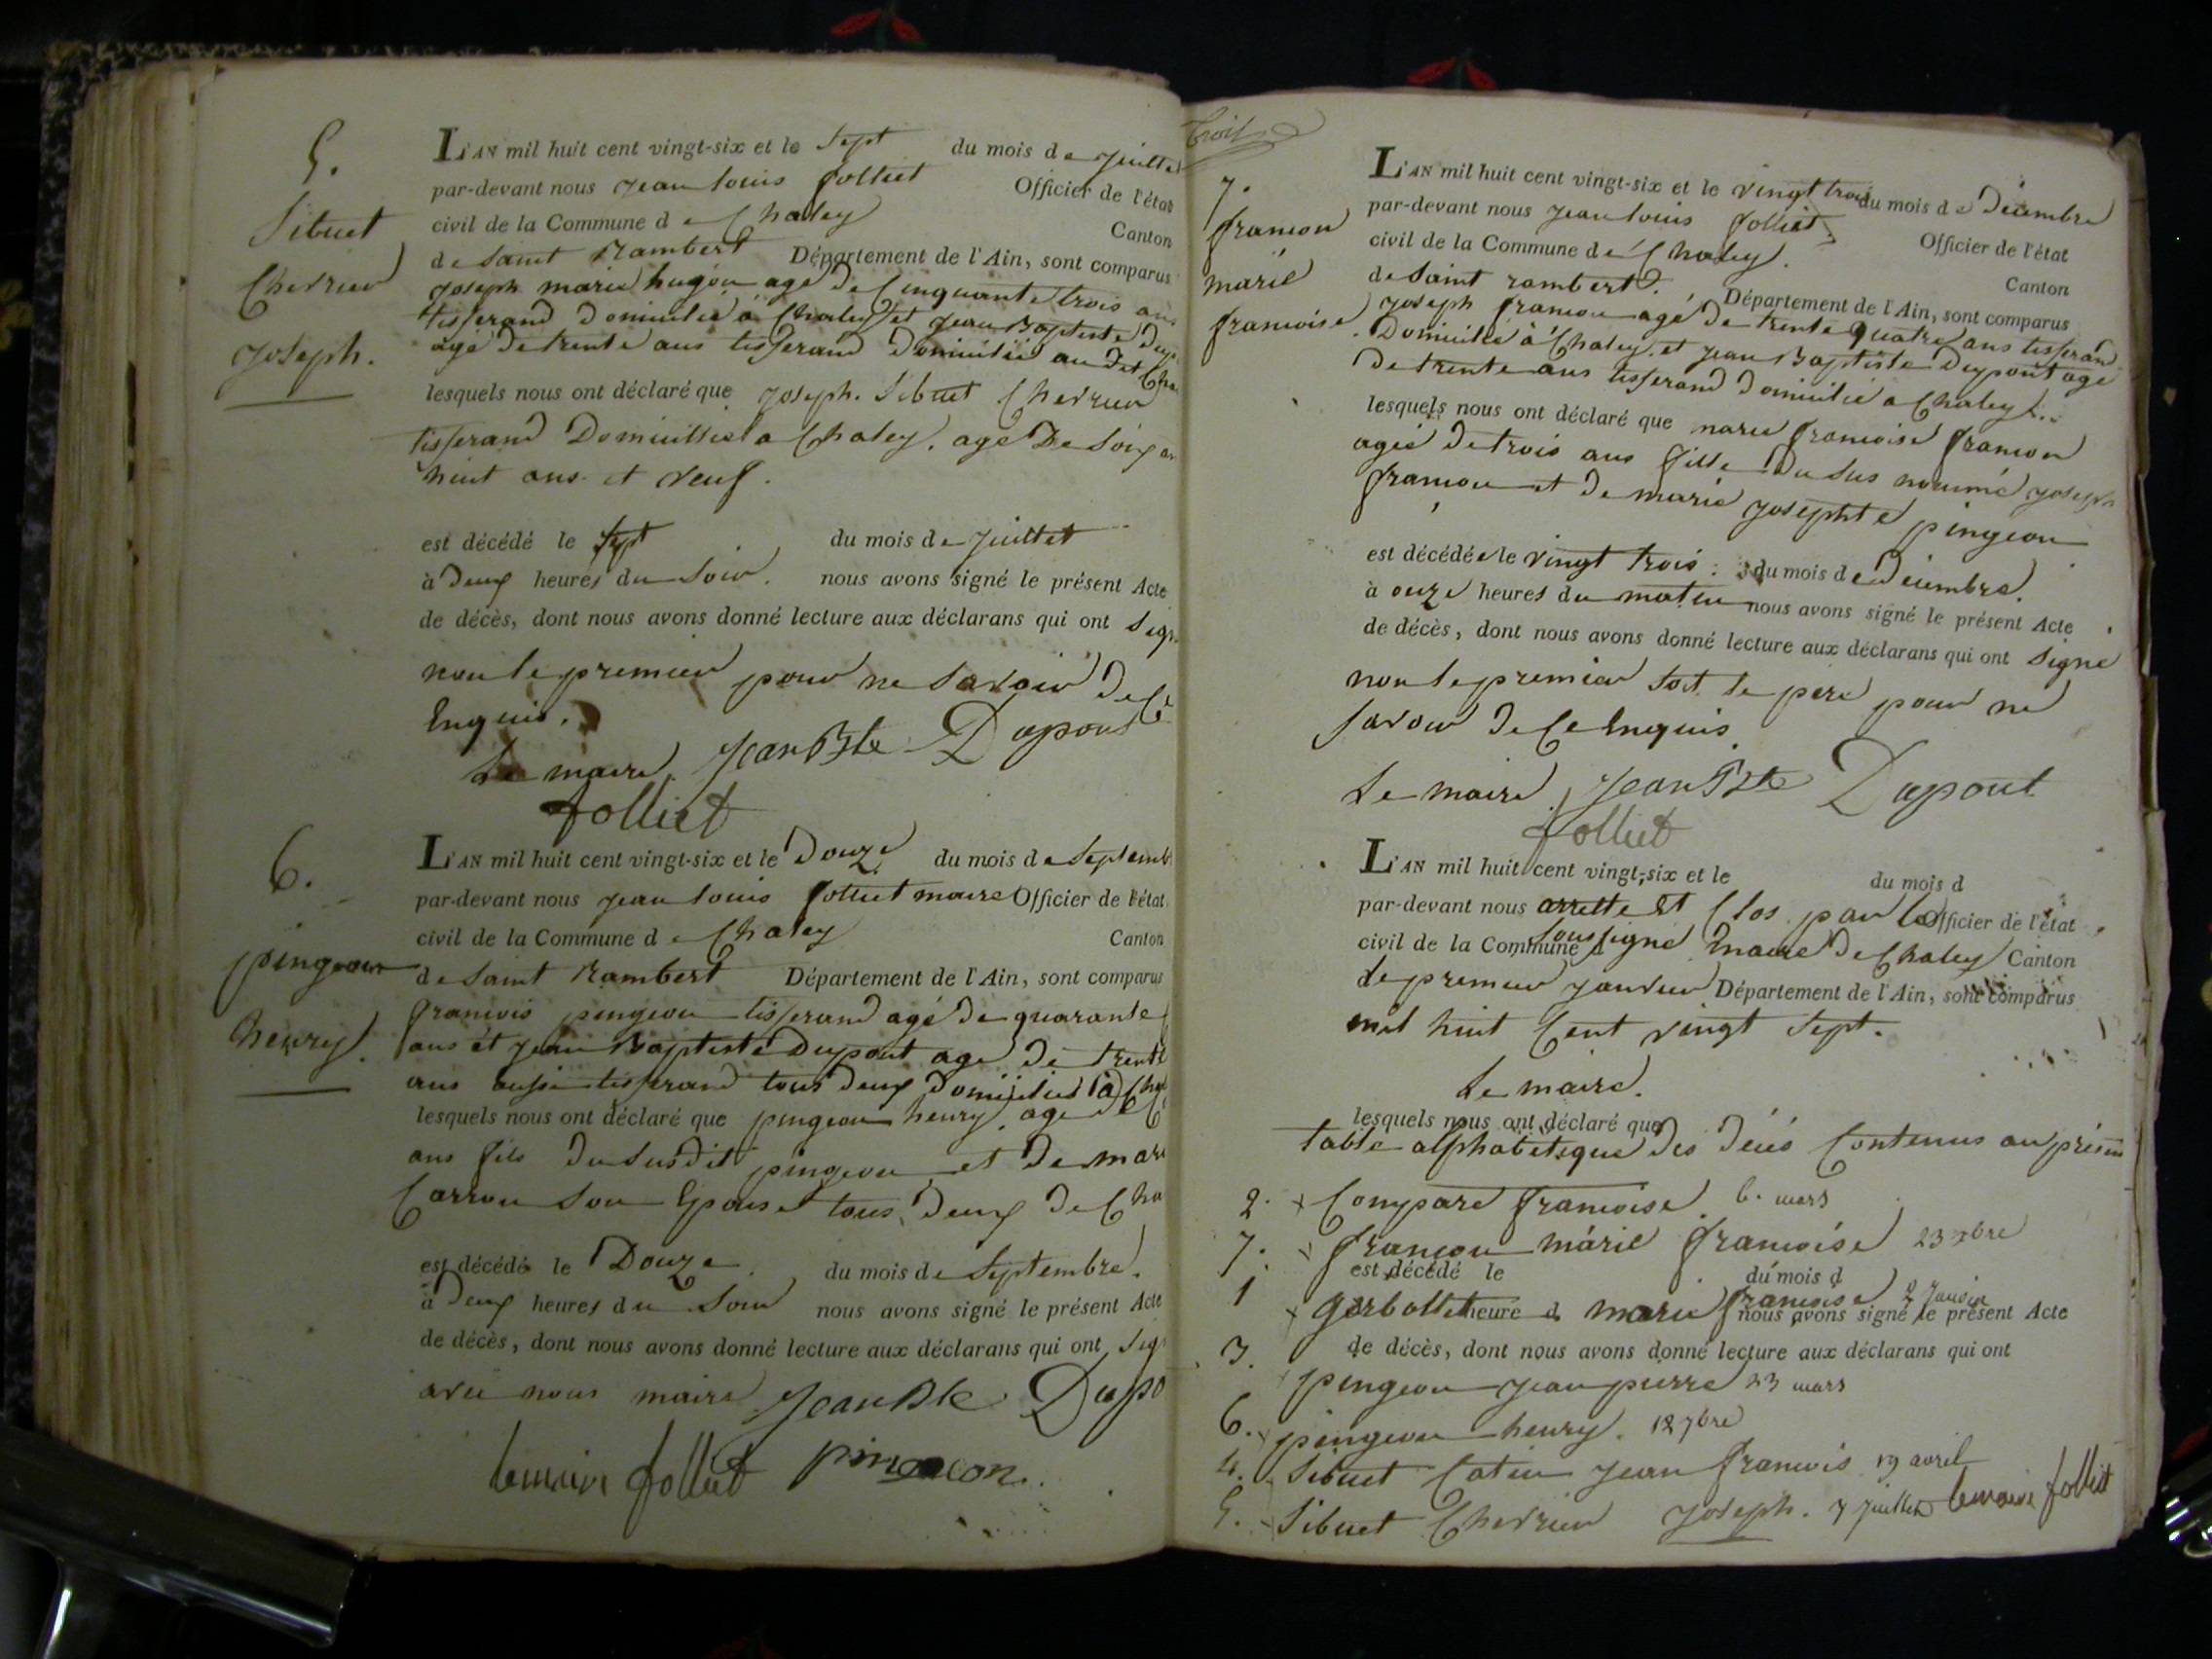 5.
Sibuet
Cherrier
Joseph.
L'AN mil huit cent vingt-six et le Sept du mois de Juillet
par-devant nous Jean Louis Jolliet Officier de l'état
civil de la Commune de Chaley Canton
de Saint Rambert Département de l'Ain, sont comparus
Joseph marie hugon agé de Cinquante trois ans
tisserand domicilié à Chaley et Jean Baptiste Dup
agé de trente ans tisserand domicilié au dit Cha
lesquels nous ont déclaré que Joseph. Sibuet Cherrier
tisserand Domicillié a Chaley. agé De Soix
huit ans et veuf.
est décédé le Sept du mois de Juillet
à deux heures du Soir. nous avons signé le présent Acte
de décès, dont nous avons donné lecture aux déclarans qui ont Sign
non le premier pour ne Savoir de Ce
Enquis.
Le maire. Jean Bte Dupont
Jolliet
6.
pingeon
henry.
L'AN mil huit cent vingt-six et le Douze du mois de Septemb
par-devant nous Jean Louis Jolliet maire Officier de l'état
civil de la Commune de Chaley Canton
de Saint Rambert Département de l'Ain, sont comparus
françois pingeon tisserand agé de quarante
ans et Jean Baptiste Dupont agé De trente
ans aussi tisserand tous deux Domiciliés à Cha
lesquels nous ont déclaré que pingeon henry. agé de
ans fils du Susdit pingeon et De mari
Carron Son Epouse tous deux De Cha
est décédé le Douze. du mois de Septembre.
à Deux heures du Soir nous avons signé le présent Acte
de décès, dont nous avons donné lecture aux déclarans qui ont Sig
avec nous maire Jean Bte Dupo
lemaire Jolliet pingeon.
Trois
7.
françon
marie
francoise
L'AN mil huit cent vingt-six et le vingt trois du mois de Décembre
par-devant nous Jean Louis Jolliet Officier de l'état
civil de la Commune de Chaley. Canton
de Saint rambert. Département de l'Ain, sont comparus
Joseph françon agé De trente quatre ans tisserand
Domicilié à Chaley. et Jean Baptiste Dupont agé
De trente ans tisserand Domicilié a Chaley...
lesquels nous ont déclaré que marie francoise françon
agée De trois ans fille Du Sus nommé Joseph
françon et De marie Josephte pingeon
est décédée le vingt trois. du mois de Décembre.
à onze heures du matin nous avons signé le présent Acte
de décès, dont nous avons donné lecture aux déclarans qui ont Signé
non le premier Soit le pere pour ne
Savoir De Ce Enquis.
Le maire. Jean Bte Dupont
Jolliet
L'AN mil huit cent vingt-six et le du mois d
par-devant nous arretté Et Clos par le Officier de l'état
civil de la Commune d Soussigné maire De Chaley Canton
Le premier Janvier Département de l'Ain, sont comparus
mil huit Cent vingt Sept.
Le maire.
lesquels nous ont déclaré que
table alphabétique Des Décés Contenus au présen
2. Compare francoise. 6. mars
7. françon marie francoise 23 xbre
est décédé le du mois d
1 Gerbollet marie francoise 8 Janvier
heure d nous avons signé le présent Acte
de décès, dont nous avons donné lecture aux déclarans qui ont
3. pingeon Jean pierre 23 mars
6. pingeon henry. 12 7bre
4. Sibuet Catin Jean francois 19 avril
5. Sibuet Cherrier Joseph. 7 juillet lemaire Jolliet